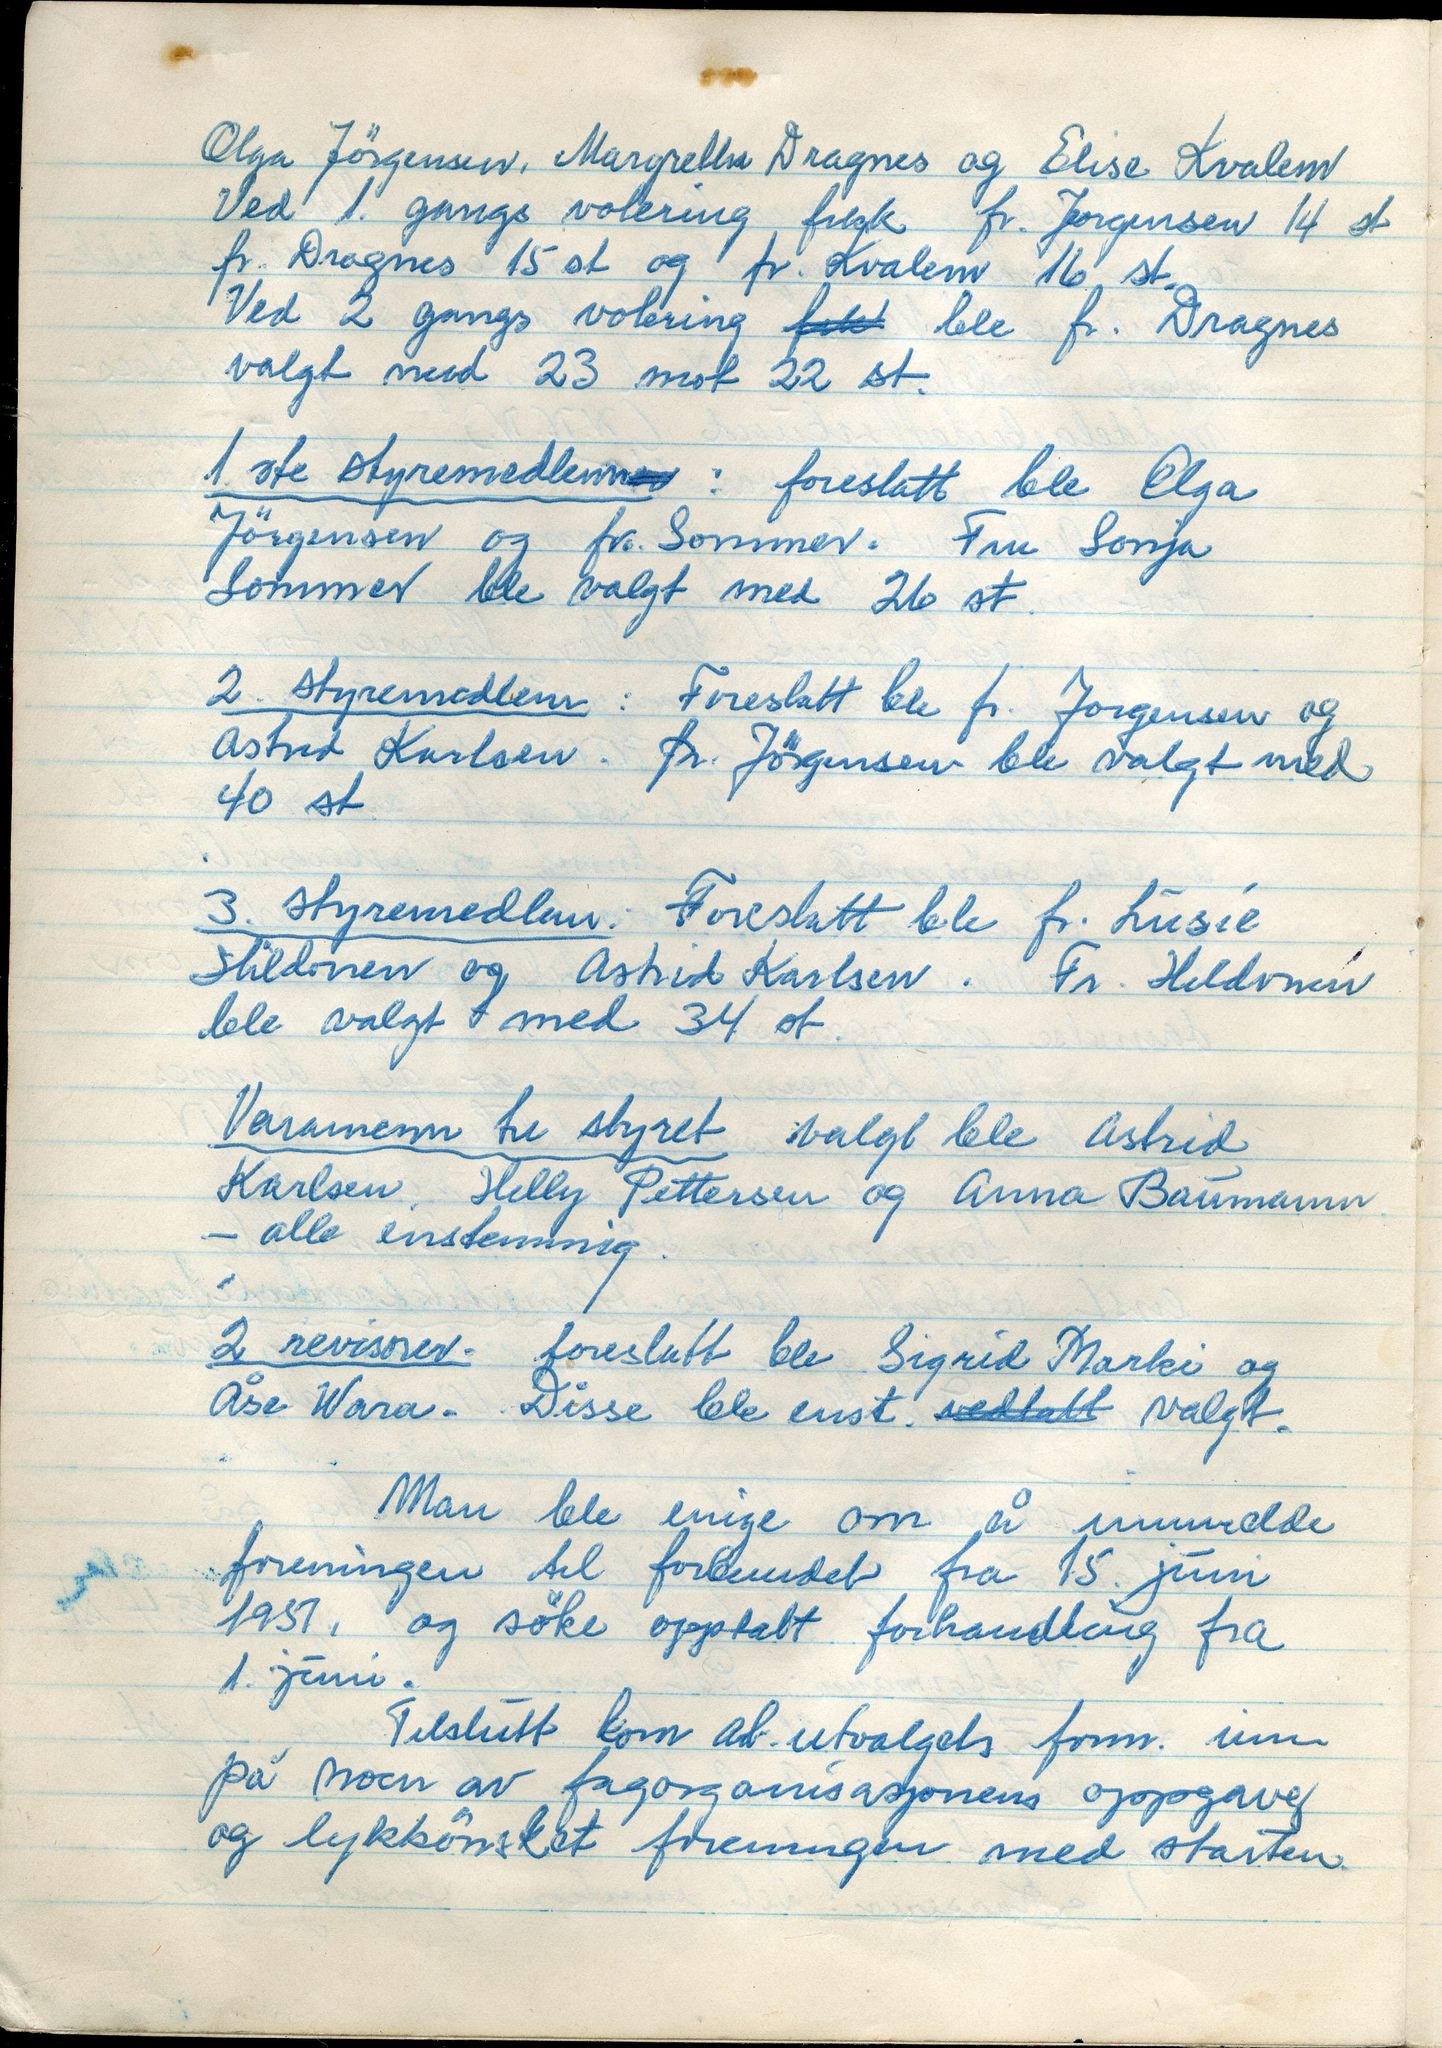 Olga Jörgensen, Margrethe Dragnes og Elise Kvalem
Ved 1. gangs votering fikk fr. Jørgensen 14 st
fr. Dragnes 15 st og fr. Kvalem 16 st.
Ved 2 gangs votering ble fr. Dragnes
valgt med 23 mot 22 st.
1. ste styremedlem : foreslått ble Olga
Jörgensen og fr. Sommer. Fru Sonja
Sommer ble valgt med 26 st.
2. styremedlem : Foreslått ble fr. Jorgensen og
Astrid Karlsen. fr. Jörgensen ble valgt med
40 st
3. styremedlem. Foreslått ble fr. Lusie
Hildonen og Astrid Karlsen. Fr. Hildonen
ble valgt med 34 st.
Varamenn til styret valgt ble Astrid
Karlsen, Helly Pettersen og Anna Baumann
- alle enstemmig.
2 revisorer. foreslått ble Sigrid Marki og
Åse Wara. Disse ble enst. vedtatt valgt.
Man ble enige om å innmelde
foreningen til forbundet fra 15. juni
1951, og söke opptatt forhandling fra
1. juni.
Tilslutt kom utvalgets form. inn
på noen av fagorganisasjonens oppgaver
og lykkönsket foreningen med starten.